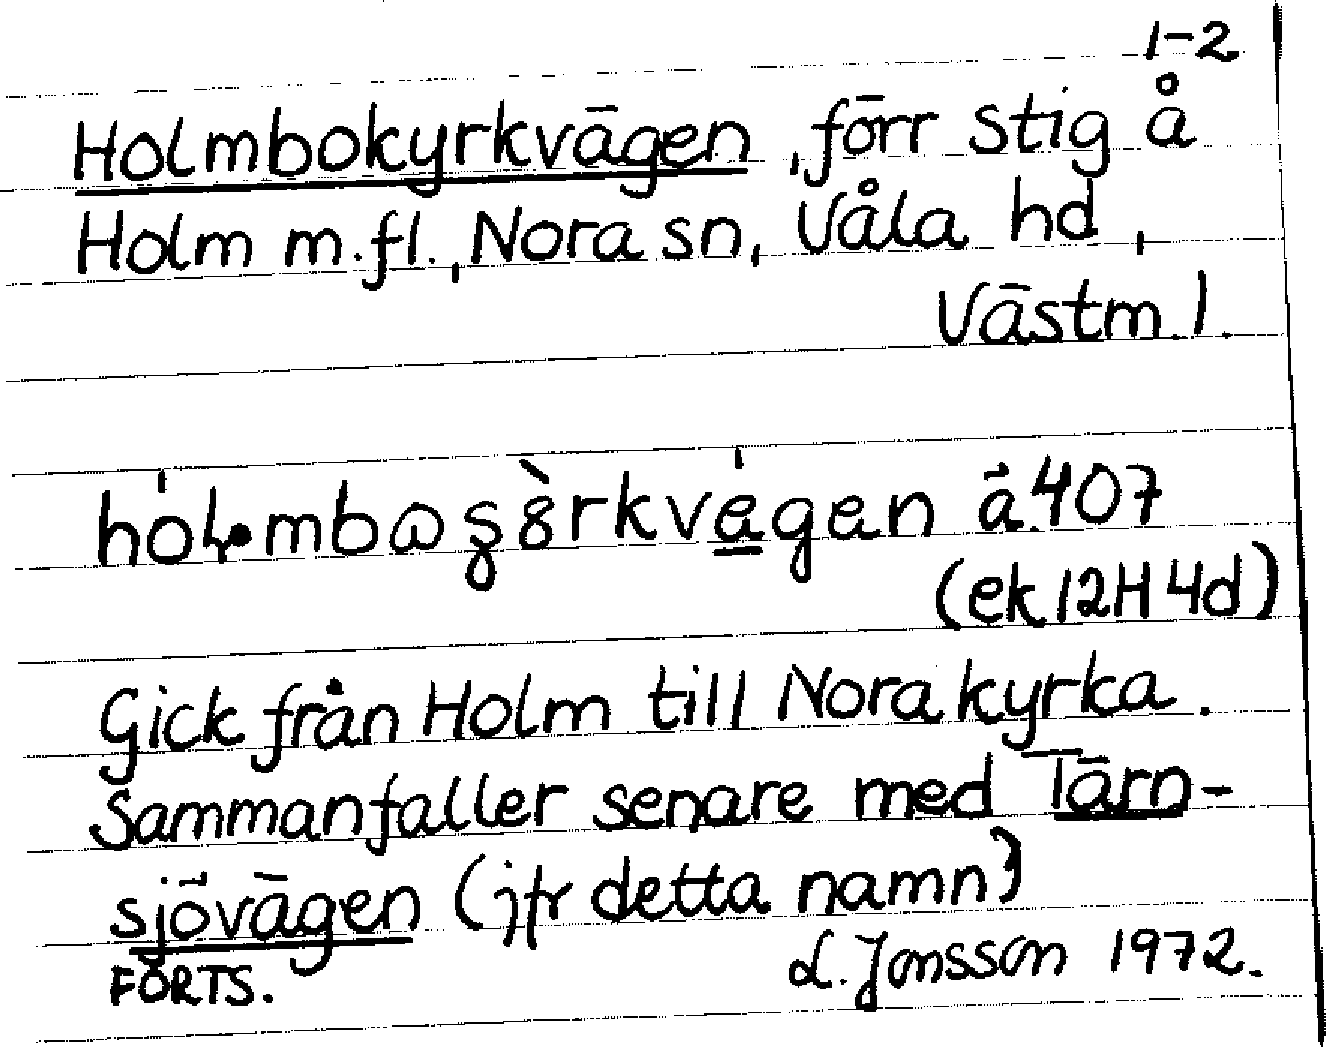 1-2
Holmbokyrkvägen, förr stig å
Holm m.fl., Nora sn, Våla hd,
Västm.l.
å.407
(ek 12H 4d)
Gick från Holm till Nora kyrka.
Sammanfaller senare med Tärn-
sjövägen (jfr detta namn)
FORTS.
L. Jonsson 1972.